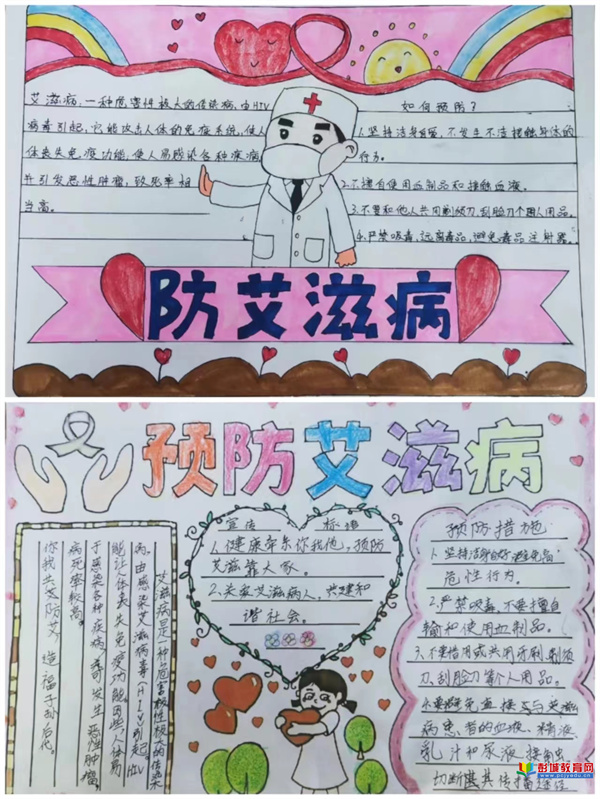 艾滋病：一种危害性极大的传染病，由HIV
病毒引起，它能攻击人体的免疫系统，使人
体丧失免疫功能，使人易感染各种疾病
并引发恶性肿瘤，致死率相
当高。
如何预防？
1.坚持洁身自爱，不发生不洁接触身体的
行为。
2.不擅自使用血制品和接触血液。
3.不要和他人共用剃须刀，刮脸刀个人用品。
4.严禁吸毒，远离毒品，避免毒品注射器。
防艾滋病
预防艾滋病
艾滋病是一种危害极性极大的传染
病，由感染艾滋病毒(HIV)引起。HIV
能让人体丧失免疫功能，因此人体易
于感染各种疾病，并可发生恶性肿瘤
病死率较高。
你我共参防艾 造福子孙后代。
宣传 标语
1.健康牵系你我他，预防
艾滋靠大家。
2.关爱艾滋病人，共建和
谐社会。
预防措施
1.坚持洁身自好，避免高
危性行为。
2.严禁吸毒，不要擅自
输和使用血制品。
3.不要借用或共用牙刷、剃须
刀、刮脸刀等个人用品。
4.要避免直接与艾滋
病患者的血液、精液、
乳汁和尿液接触，
切断其传播途径
彭城教育网
www.pcjyedu.cn